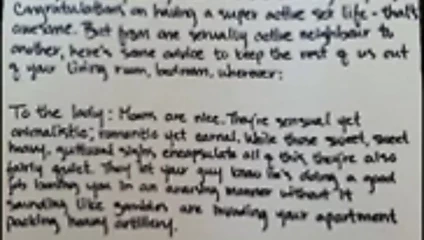 Congratulations on having a super active sex life - that's
awesome. But from one sexually active neighbour to
another, here's some advice to keep the rest of us out
of your living room, bedroom, wherever:
To the lady: Moans are nice. They're sensual yet
animalistic; romantic yet carnal. While those sweet, sweet
heavy, guttural sighs encapsulate all of this, they're also
fairly quiet. They let your guy know he's doing a good
job you in an manner without it
sounding like are invading your apartment
packing heavy artillery.